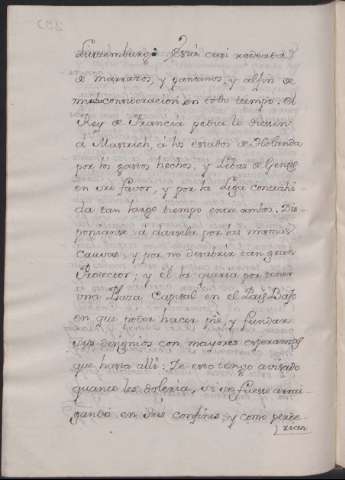 Luxemburg: Está casi rodeada
de marrazos, y pantanos, y al fin de
más consideracion en todo tiempo. El
Rey de Francia pedia le diessen
á Mastrich, á los estados de Holanda
por los gastos hechos, y Lebas de Gente
en su favor, y por la Liga concluhi
da tan largo tiempo entre ambos. Dis
ponianse á darsela por las mismas
Causas, y por no desabrir tan gran
Protector; y El la queria por tener
una Plaza Capital en el Pais Bajo
en que poder hacer pie, y fundar
sus designios con mayores esperanzas
que hasta alli: De esto tengo avisado
quanto les doleria, si se fuese arrai
gando en sus confines, y como perde
rian